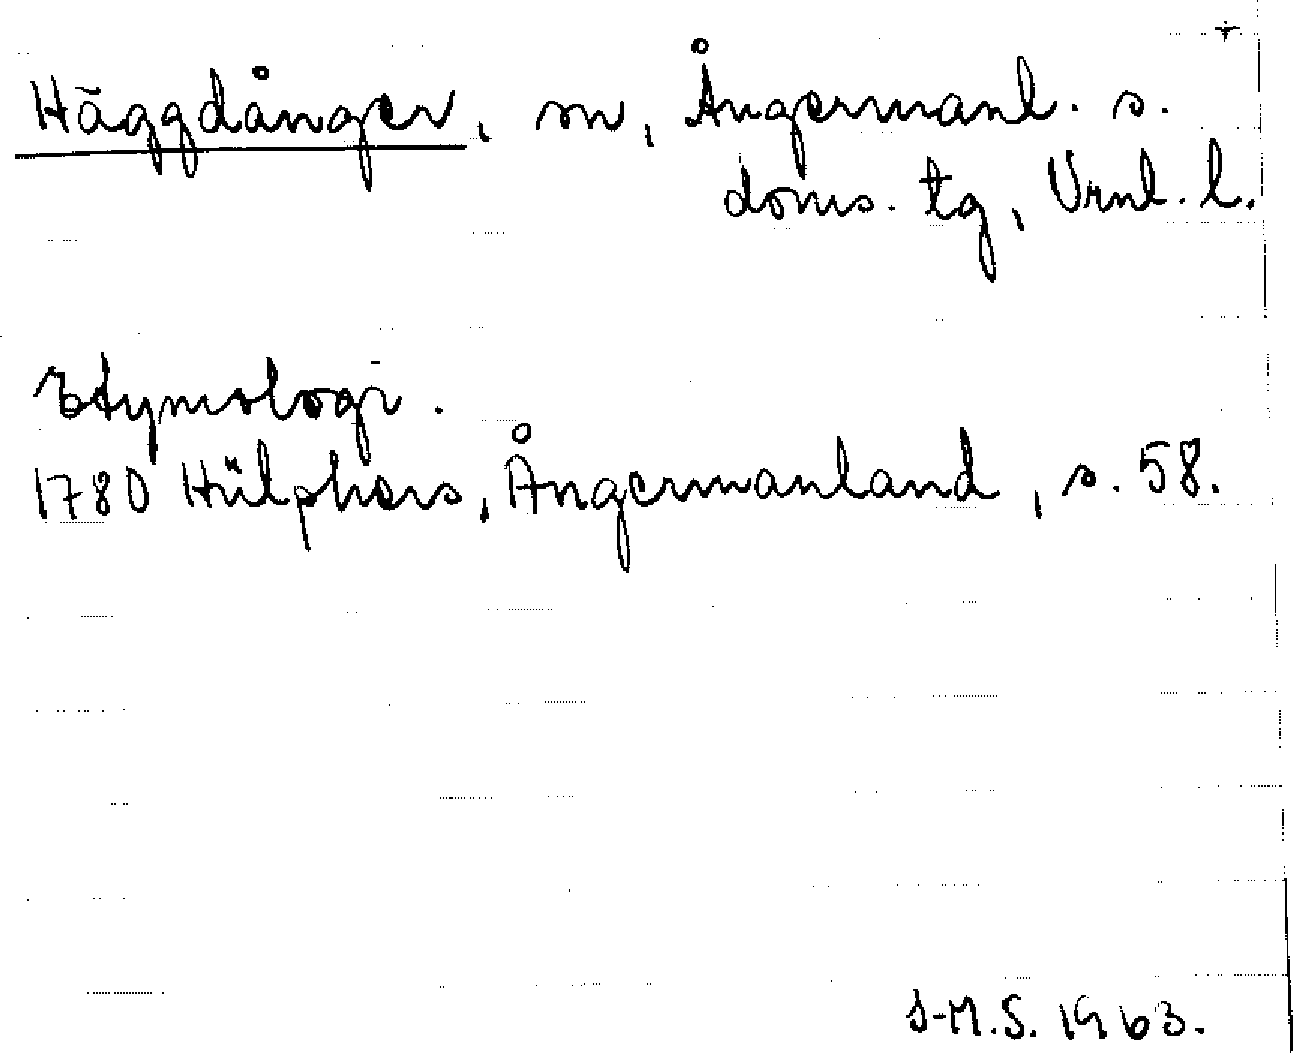 +
Häggdånger, sn, Ångermanl. s.
doms. tg, Vrnl. l.
Etymologi.
1780 Hülphers, Ångermanland, s. 58.
J-M.S. 1963.